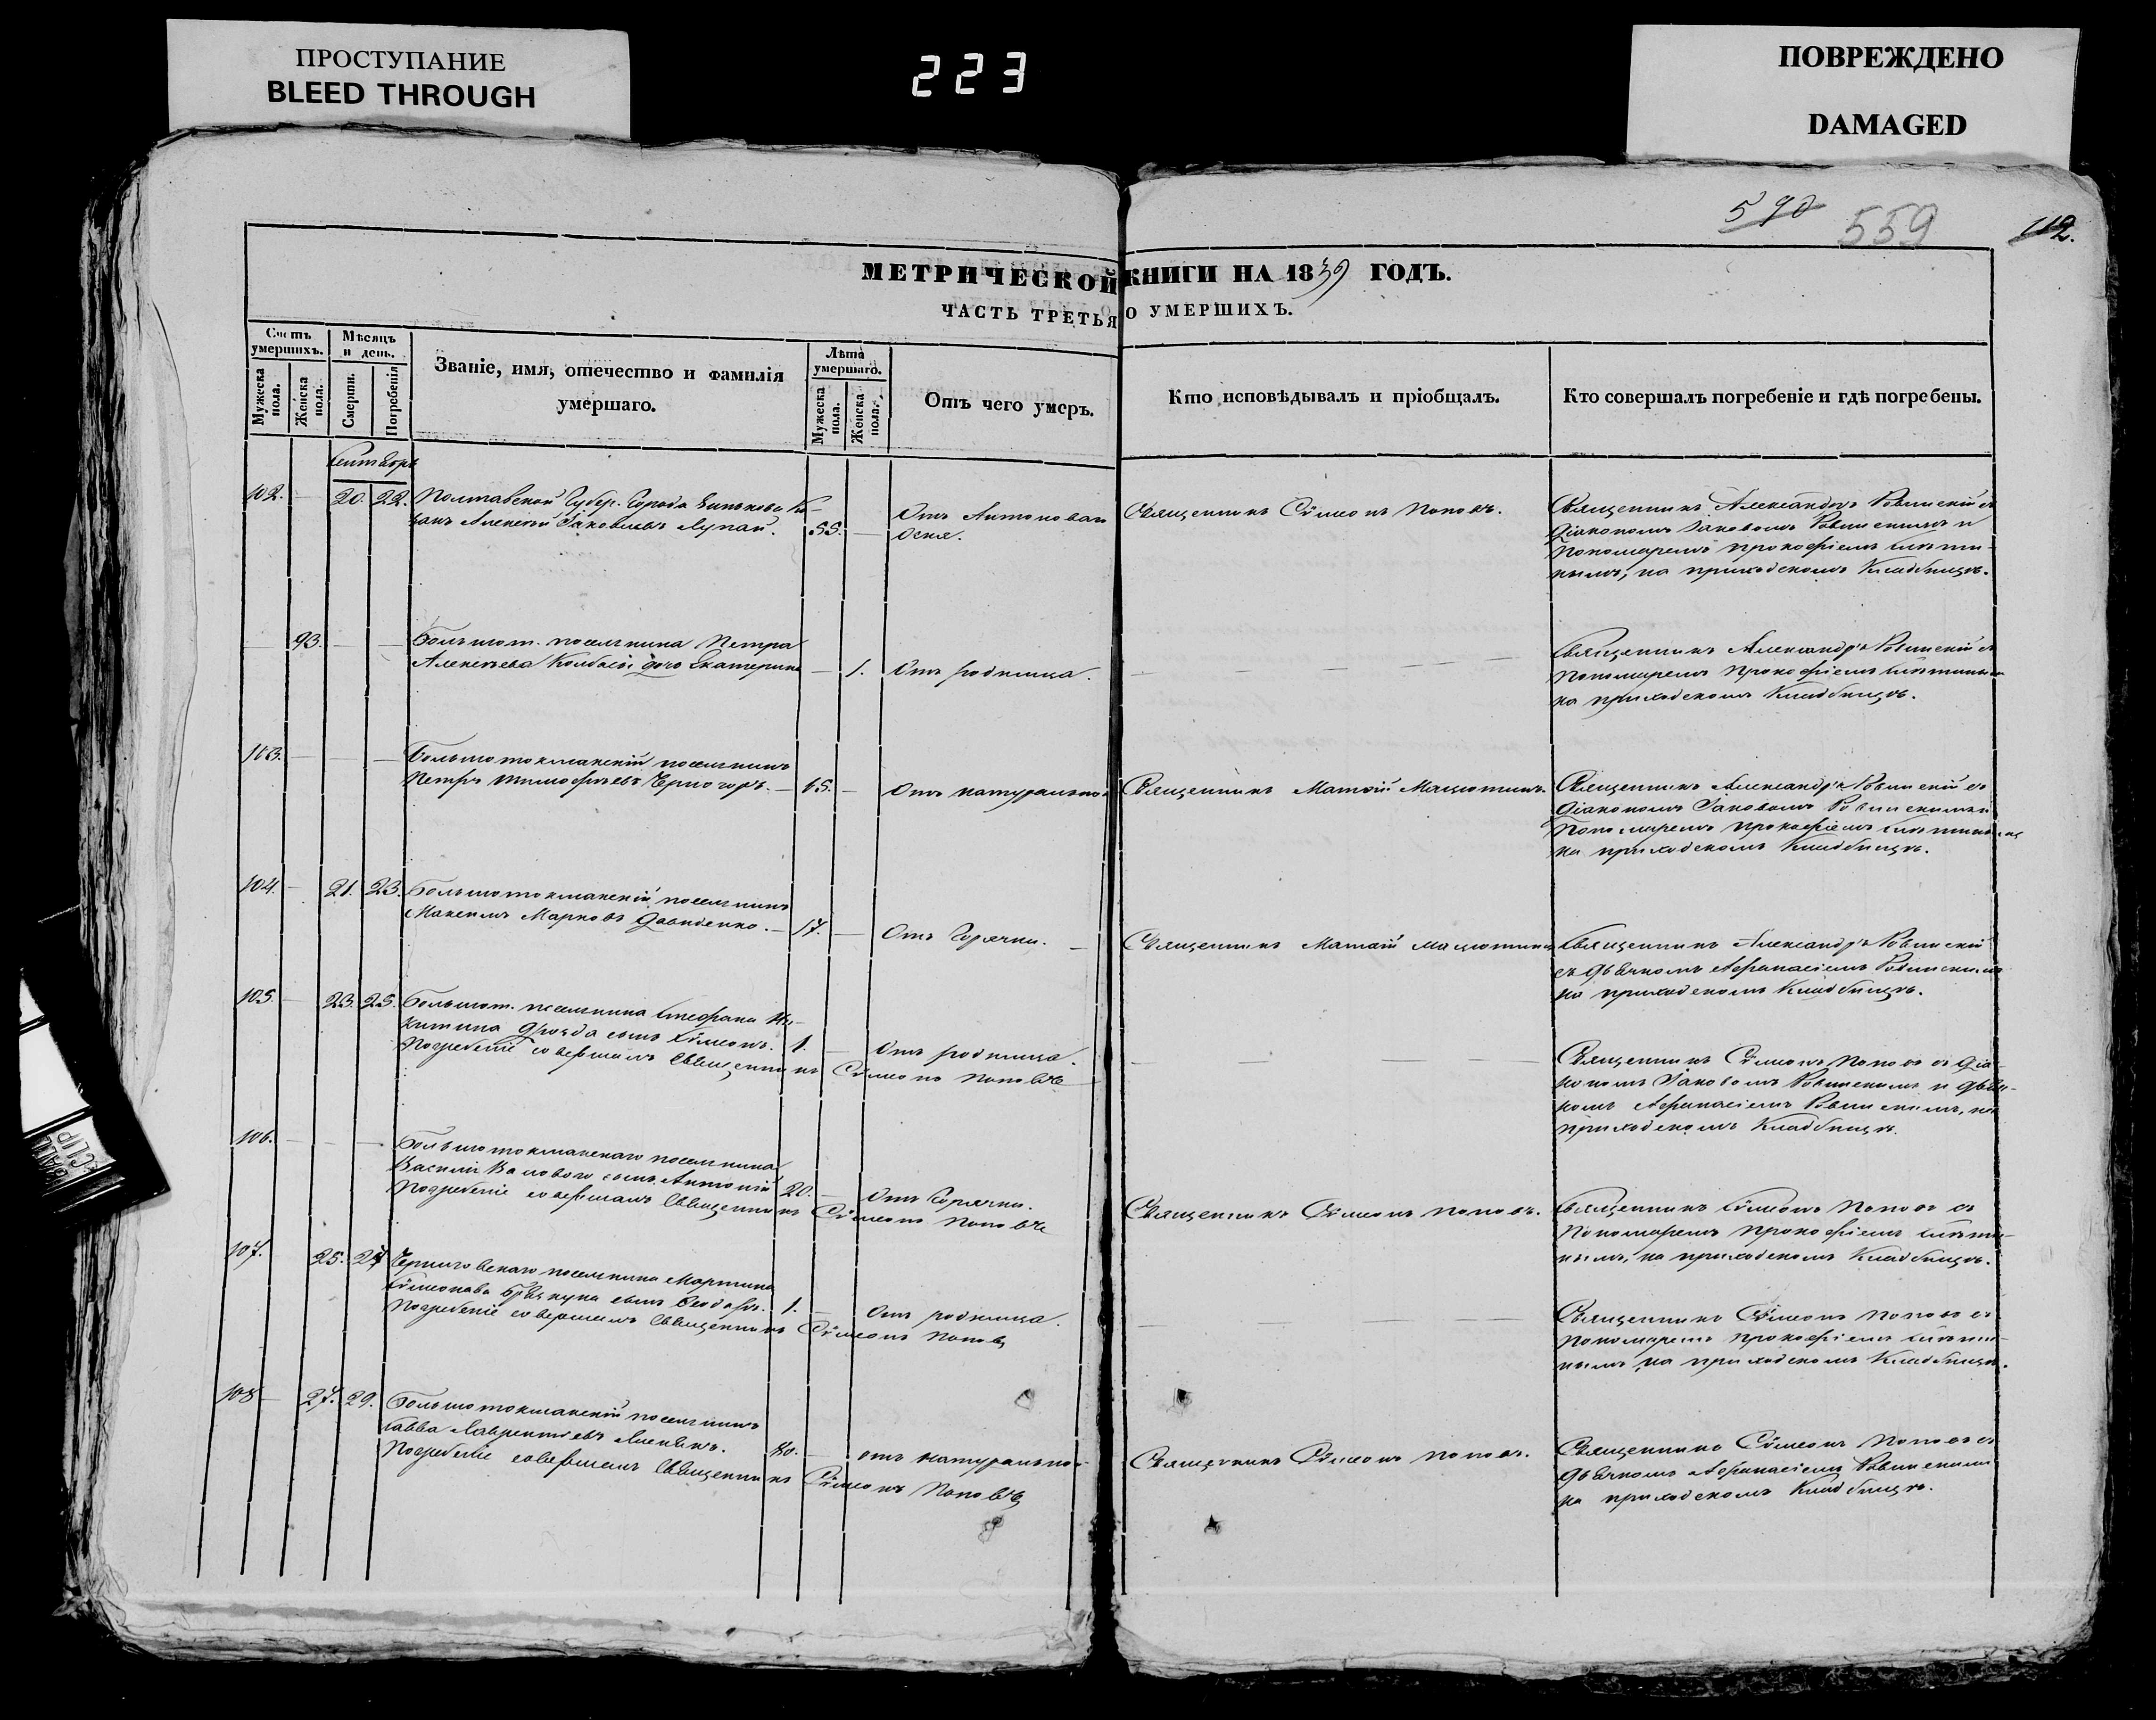 ПРОСТУПАНИЕ
BLEED THROUGH
223
ПОВРЕЖДЕНО
DAMAGED
590
559
112.
МЕТРИЧЕСКОЙ КНИГИ НА 1839 ГОДЪ.
ЧАСТЬ ТРЕТЬЯ О УМЕРШИХЪ.
Счетъ умершихъ.
Мужеска пола.
Женска пола.
Мѣсяцъ и день.
Смерти.
Погребенія
Званіе, имя, отечество и фамилія
умершаго.
Лѣта умершаго.
Мужеска пола.
Женска пола.
Отъ чего умеръ.
Кто исповѣдывалъ и пріобщалъ.
Кто совершалъ погребеніе и гдѣ погребены.
Сентябрь
102. — 20. 22. Полтавской Губер. Города Зинькова Ко-
закъ Алексѣй Іаковлевъ Лупай. 55. —
Отъ Антонова
Огня.
Священникъ Сѵмеонъ Поповъ.
Священникъ Александръ Ровинскій съ
Діакономъ Іаковомъ Ровинскимъ и
Пономаремъ Прокофіемъ
на приходскомъ Кладбищѣ.
— 93. — — Большот. поселянина Петра
Алексѣева дочь Екатерина — 1. Отъ родимца.
Священникъ Александръ Ровинскій съ
Пономаремъ Прокофіемъ
на приходскомъ Кладбищѣ.
103. — — — Большотокмакскій поселянинъ
Петръ Тимофѣевъ Черногоръ. — 65. — Отъ натуральной
Священникъ Матѳій Мацютинъ.
Священникъ Александръ Ровинскій съ
Діакономъ Іаковомъ Ровинскимъ и
Пономаремъ Прокофіемъ
на приходскомъ Кладбищѣ.
104. — 21. 23. Большотокмакскій поселянинъ
Максимъ Марковъ Давиденко. — 17. — Отъ Горячки. —
Священникъ Матѳій Мацютинъ
Священникъ Александръ Ровинскій
съ Дьячкомъ Афанасіемъ Ровинскимъ
на приходскомъ Кладбищѣ.
105. — 23. 25. Большот. поселянина Стефана Ни-
китина Дрозда сынъ Сѵмеонъ. 1. — Отъ родимца.
Погребеніе совершалъ Священникъ Сѵмеонъ Поповъ
Священникъ Сѵмеонъ Поповъ съ Діа-
кономъ Іаковомъ Ровинскимъ и Дьяч-
комъ Афанасіемъ Ровинскимъ, на
приходскомъ Кладбищѣ.
106. — — — Большотокмакскаго поселянина
Василія сынъ Антоній 20. — Отъ Горячки.
Погребеніе совершалъ Священникъ Сѵмеонъ Поповъ
Священникъ Сѵмеонъ Поповъ.
Священникъ Сѵмеонъ Поповъ съ
Пономаремъ Прокофіемъ
на приходскомъ Кладбищѣ.
107. 25. 27 Черниговскаго поселянина Мартина
Сѵмеонова сынъ Ѳеодоръ. 1. — Отъ родимца.
Погребеніе совершалъ Священникъ Сѵмеонъ Поповъ
Священникъ Сѵмеонъ Поповъ съ
Пономаремъ Прокофіемъ
на приходскомъ Кладбищѣ.
108 — 27. 29. Большотокмакскій поселянинъ
Савва Лаврентіевъ 80. — отъ натуральной
Погребеніе совершалъ Священникъ Сѵмеонъ Поповъ
Священникъ Сѵмеонъ Поповъ.
Священникъ Сѵмеонъ Поповъ съ
Дьячкомъ Афанасіемъ Ровинскимъ
на приходскомъ Кладбищѣ.